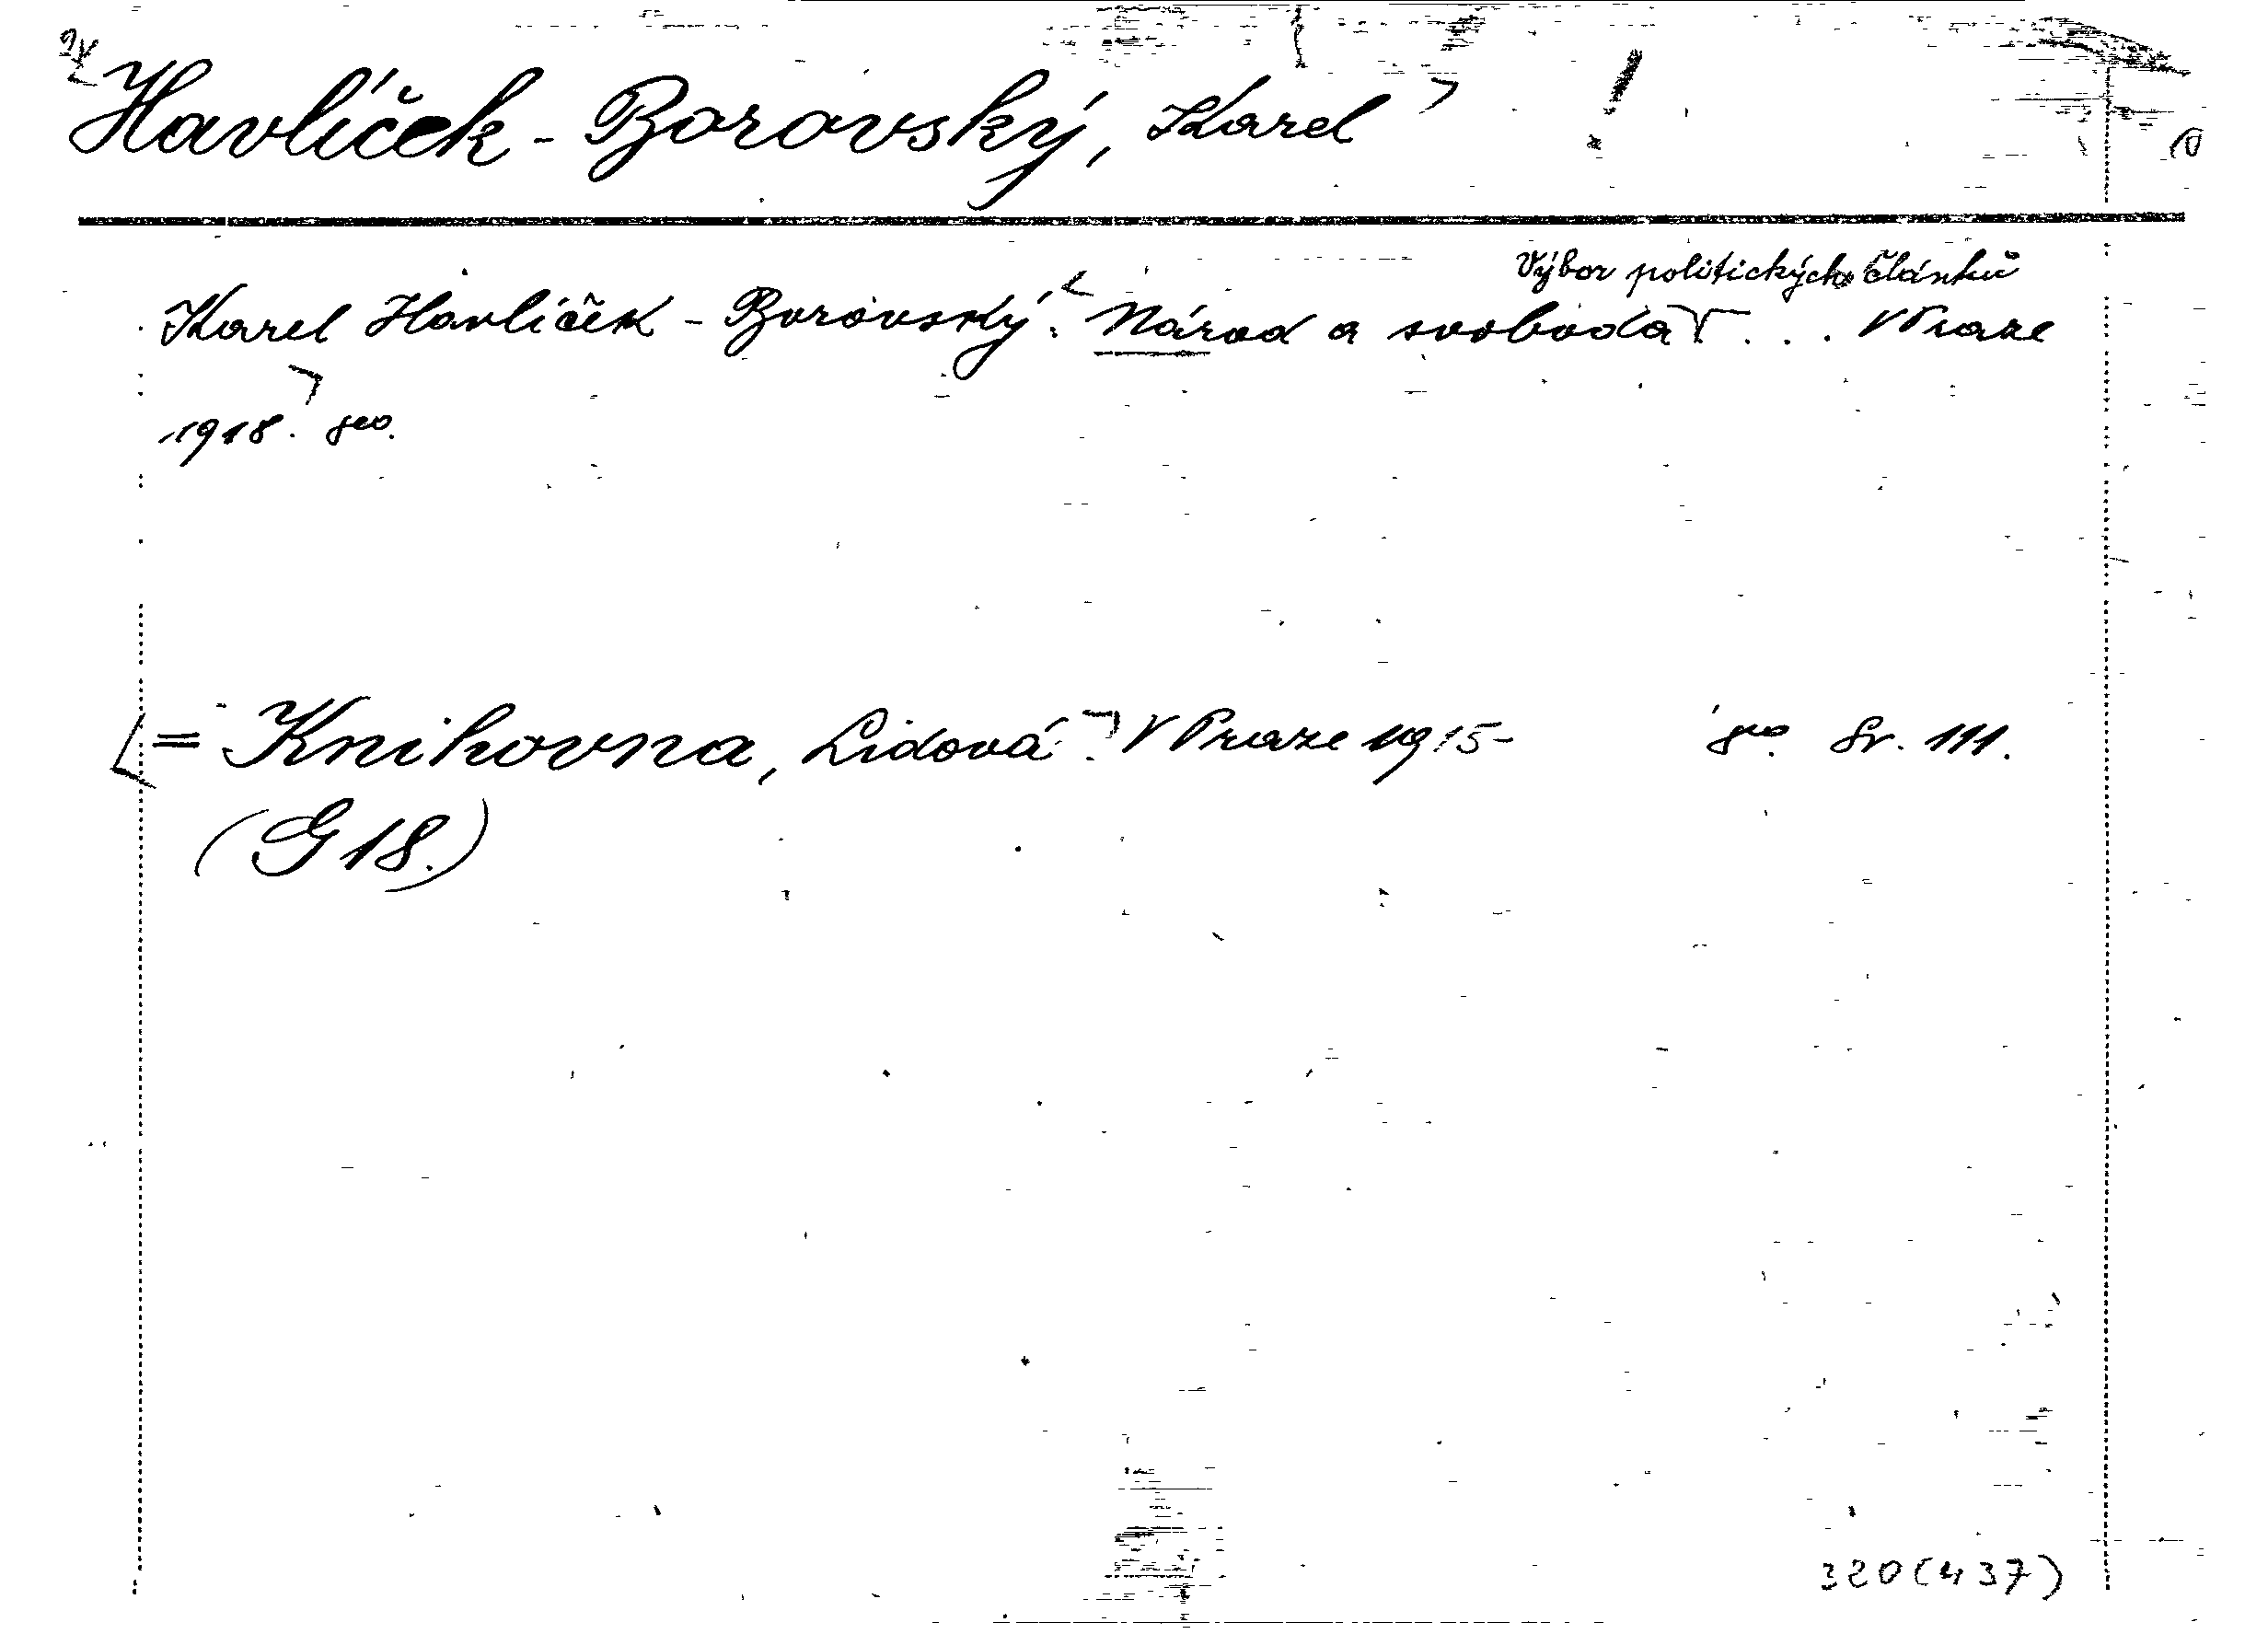 Havlíček - Borovský, Karel !
Výbor politických článků
Karel Havlíček - Borovský: Národ a svoboda ... V Praze
1918. 8vo.
= Knihovna, Lidová. V Praze 1915- 8vo. Sv. 111.
(G 18.)
320(437)